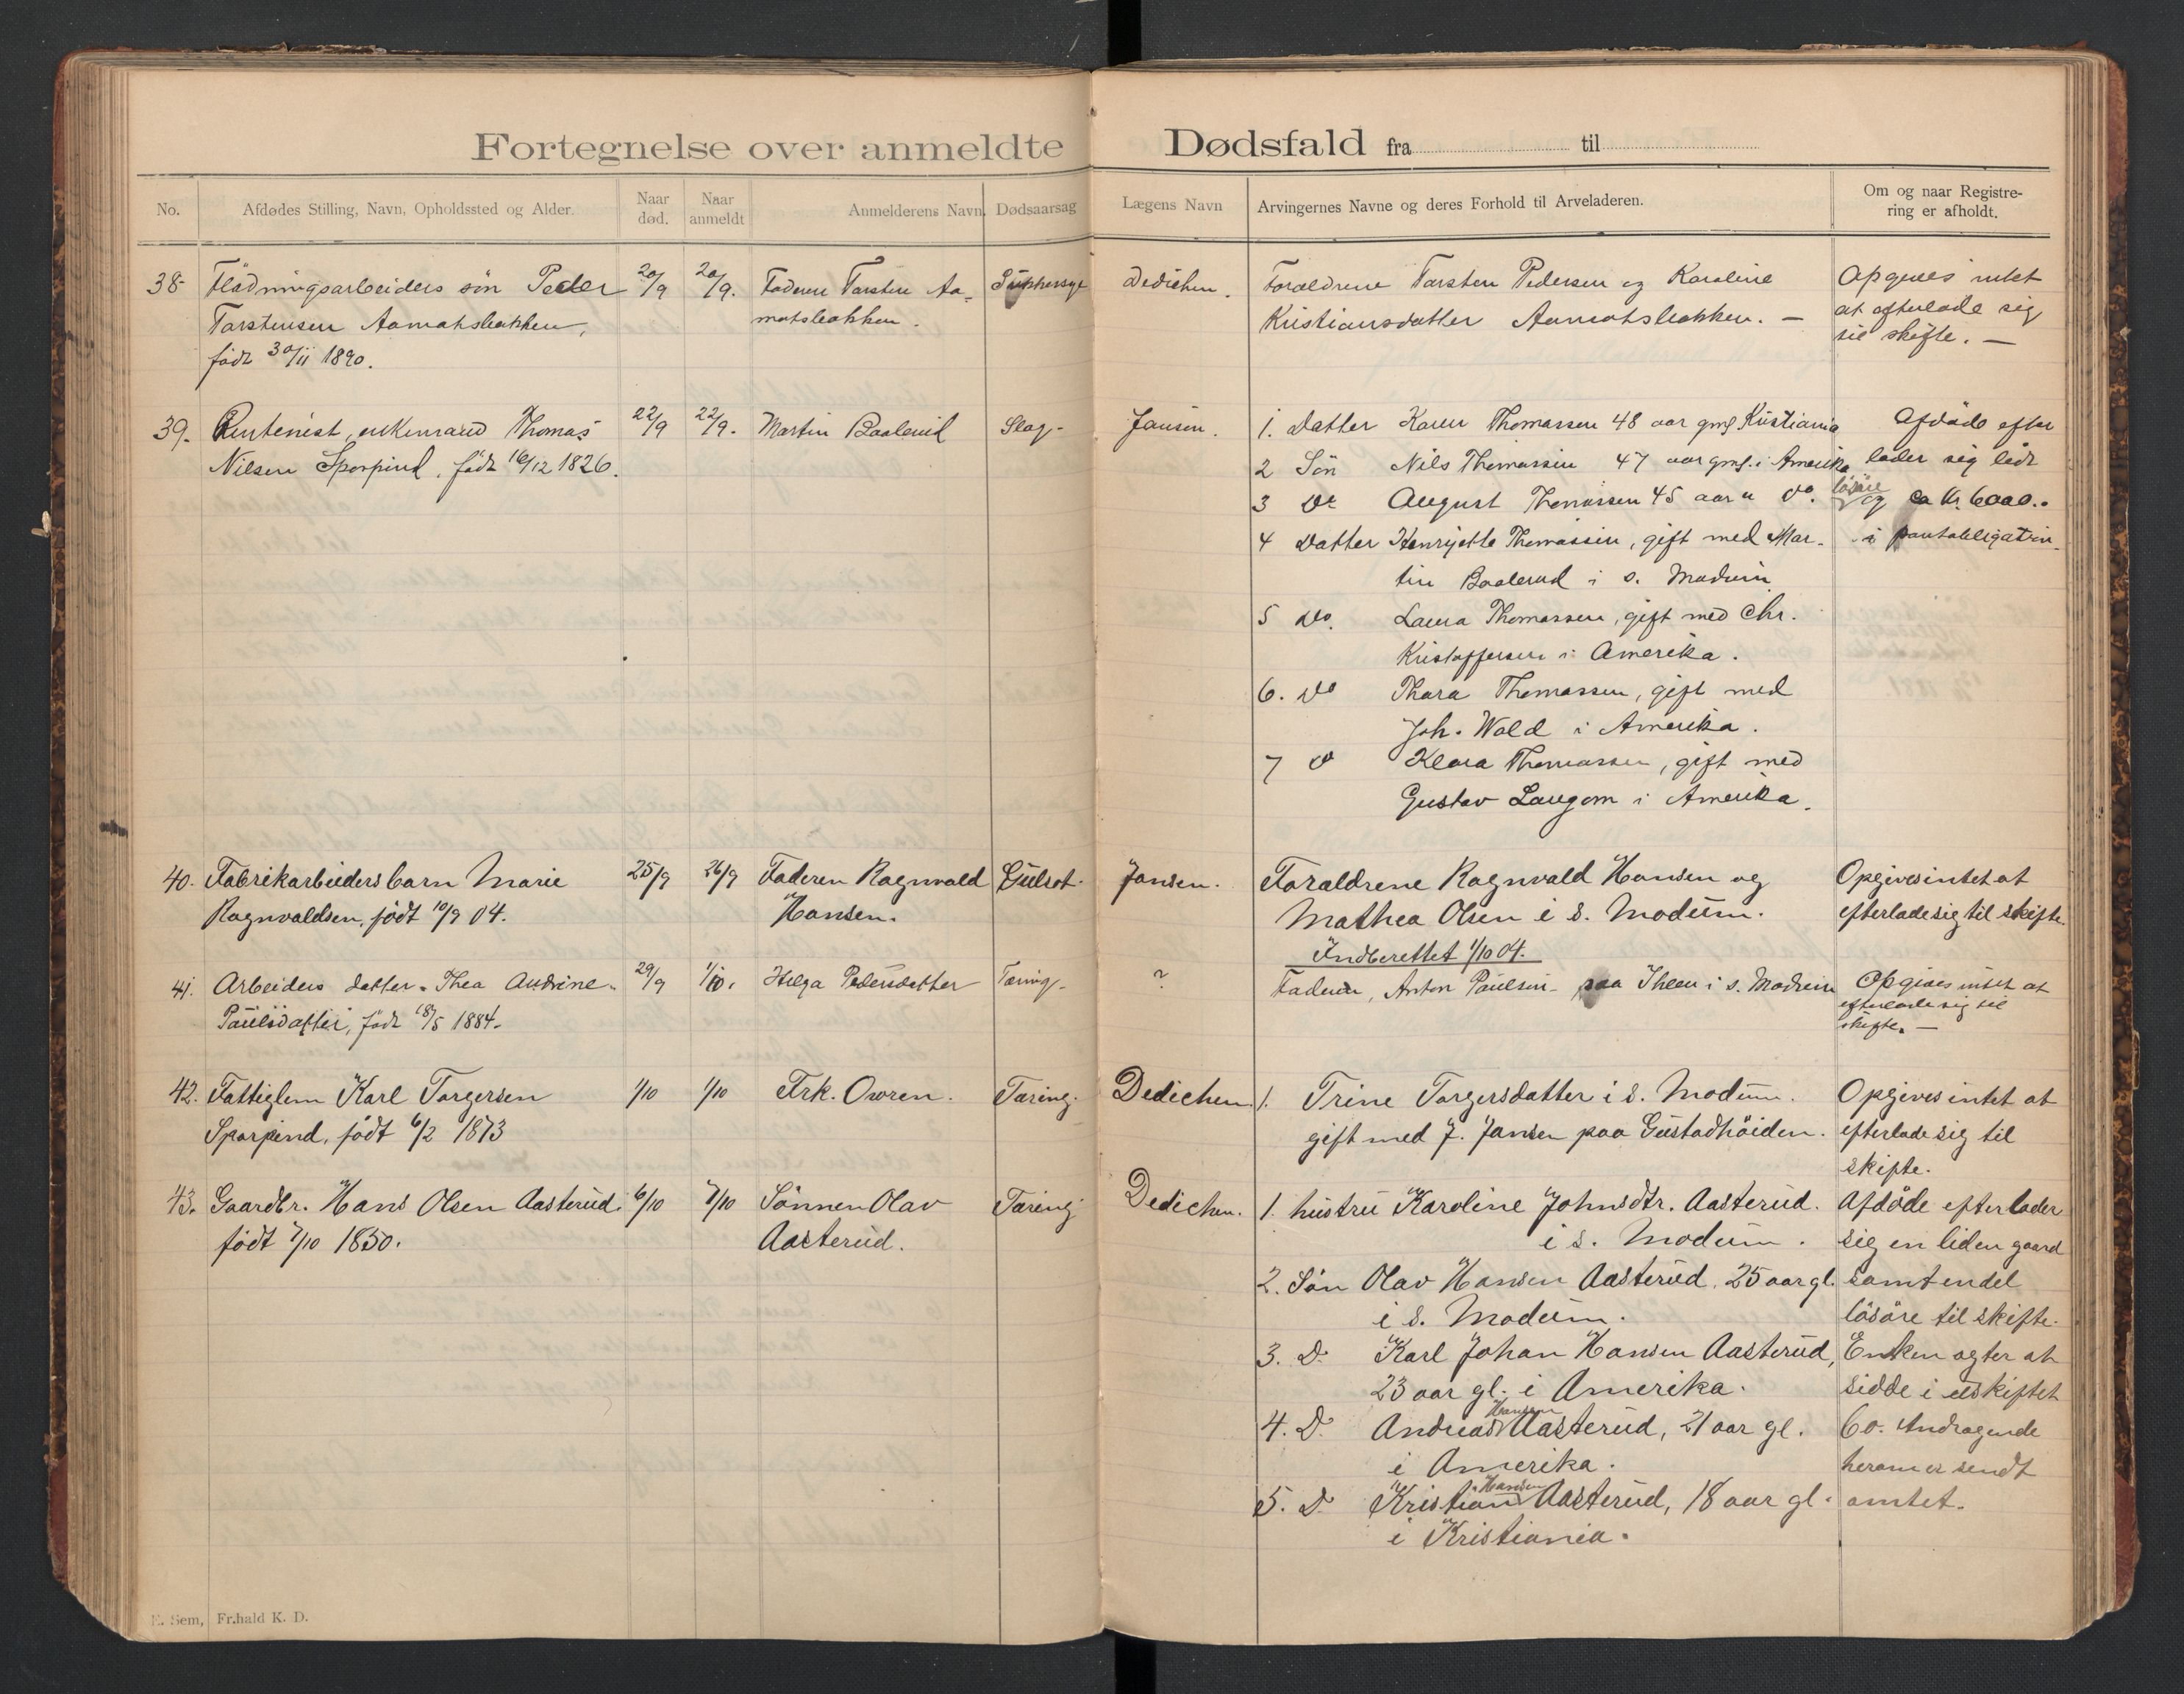 Fortegnelse over anmeldte Dødsfald fra til
No. Afdødes Stilling, Navn, Opholdssted og Alder. Naar død. Naar anmeldt Anmelderens Navn. Dødsaarsag Lægens Navn Arvingernes Navne og deres Forhold til Arveladeren. Om og naar Registrering er afholdt.
38 Flødningsarbeiders søn Peder 20/9 20/9. Faderen Torsten Aa- Dedichen. Forældrene Torsten Pedersen og Karoline Opgives intet
Torstensen Aamotsbakken, motsbakken. Kristiansdatter Aamotsbakken. — at efterlade sig
født 30/11 1890. til skifte. —
39. Rentenist, enkemand Thomas 22/9 22/9. Martin Baalerud Slag- Jansen. 1. Datter Karen Thomassen 48 aar gml Kristiania Afdøde efter
Nilsen Sporpind, født 16/12 1826. 2 Søn Nils Thomassen 47 aar gml. i Amerika lader sig lidt
3 Do August Thomassen 45 aar " do. løsøre og ca Kr. 6000..
4 Datter Henrijette Thomassen, gift med Mar- i pantobligation.
tin Baalerud i s. Modum
5 do. Laura Thomassen, gift med Chr.
Kristoffersen i Amerika.
6. do Thora Thomassen, gift med
Joh. Wold i Amerika.
7 do Klara Thomassen, gift med
Gustav Laugom i Amerika.
40. Fabrikarbeiders barn Marie 25/9 26/9 Faderen Ragnvald Gulsot. Jansen. Forældrene Ragnvald Hansen og Opgives intet at
Ragnvaldsen, født 10/9 04. Hansen. Mathea Olsen i s. Modum. efterlade sig til skifte.
Indberettet 1/10 04.
41. Arbeiders datter Thea Andrine 29/9 1/10. Helga Pedersdatter Tæring- ? Faderen, Anton Paulsen paa Ihlen i s. Modum Opgives intet at
Paulsdatter, født 18/5 1884. efterlade sig til
skifte. —
42. Fattiglem Karl Torgersen 1/10 1/10 Frk. Owren. Tæring. Dedichen. 1. Trine Torgersdatter i s. Modum. Opgives intet at
Sporpind, født 6/2 1873 gift med J. Jansen paa Gustadhøiden. efterlade sig til
skifte.
43. Gaardbr. Hans Olsen Aasterud. 6/10 7/10 Sønnen Olav Tæring Dedichen. 1. hustru Karoline Johnsdtr. Aasterud. Afdøde efterlader
født 7/10 1850. Aasterud. i s. Modum. sig en liden gaard
2. Søn Olav Hansen Aasterud. 25 aar gl. samt endel
i s. Modum. løsøre til skifte.
3. D. Karl Johan Hansen Aasterud, Enken agter at
23 aar gl. i Amerika. sidde i uskiftet
4. D. Andreas Hansen Aasterud, 21 aar gl. bo. Andragende
i Amerika. herom er sendt
5. D. Kristian Hansen Aasterud, 18 aar gl. amtet.
i Kristiania.
E. Sem, Fr.hald K. D.